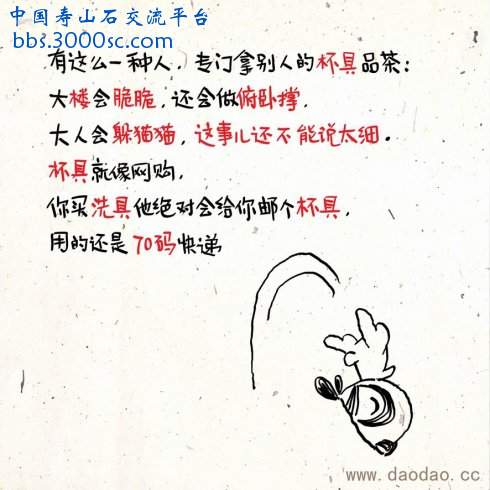 中国寿山石交流平台
bbs.3000sc.com
有这么一种人，专门拿别人的杯具品茶：
大楼会脆脆，还会做俯卧撑，
大人会躲猫猫，这事儿还不能说太细．
杯具就像网购，
你买洗具他绝对会给你邮个杯具，
用的还是70码快递
www.daodao.cc